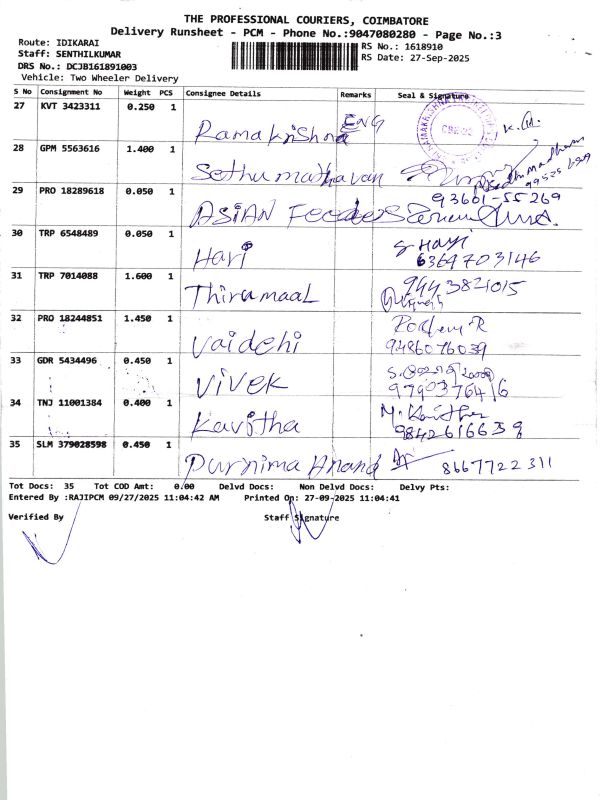 THE PROFESSIONAL COURIERS, COIMBATORE
Delivery Runsheet - PCM - Phone No.:9047080280 - Page No.:3
Route: IDIKARAI
RS No.: 1618910
Staff: SENTHILKUMAR
RS Date: 27-Sep-2025
DRS No.: DCJB161891003
Vehicle: Two Wheeler Delivery
S No Consignment No Weight PCS Consignee Details Remarks Seal & Signature
27 KVT 3423311 0.250 1 Ramakrishna ENG
28 GPM 5563616 1.400 1 Sethumathavan
29 PRO 18289618 0.050 1 ASIAN 93601-55269
30 TRP 6548489 0.050 1 Hari S Hari 6369703146
31 TRP 7014088 1.600 1 Thirumaal 9443821015
32 PRO 18244851 1.450 1 Vaidehi 9486076039
33 GDR 5434496 0.450 1 Vivek 9790376416
34 TNJ 11001384 0.400 1 Kavitha 9842616639
35 SLM 379028598 0.450 1 Purnima Anand 8667722311
Tot Docs: 35 Tot COD Amt: 0.00 Delvd Docs: Non Delvd Docs: Delvy Pts:
Entered By :RAJIPCM 09/27/2025 11:04:42 AM Printed On: 27-09-2025 11:04:41
Verified By Staff Signature